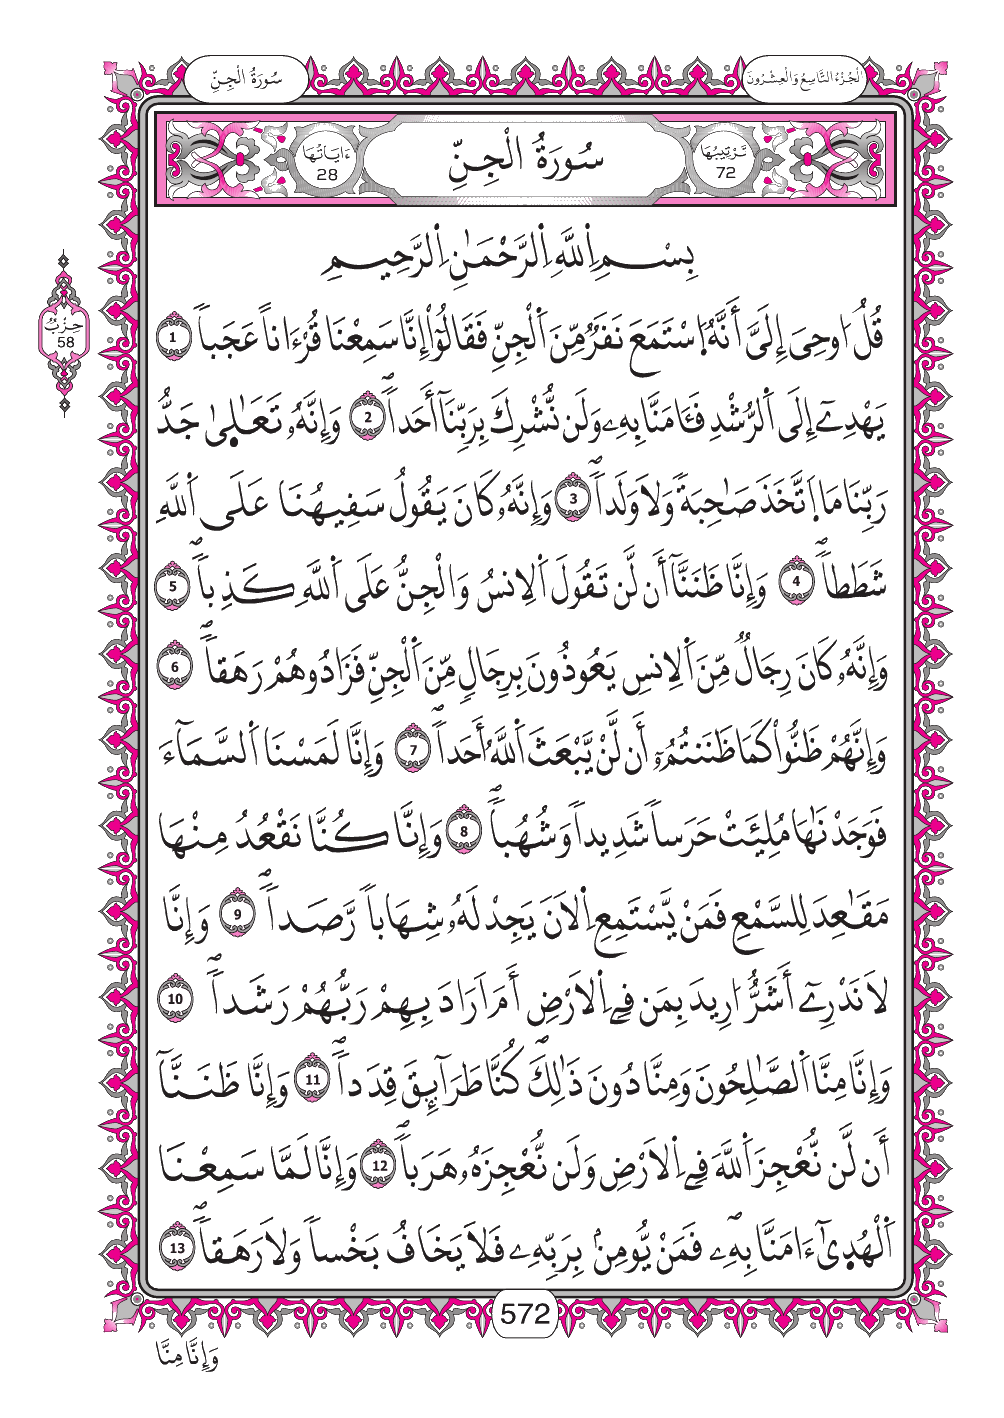 الْجُزْءُ التَّاسِعُ وَالْعِشْرُونَ
سُورَةُ الْجِنِّ
تَرْتِيبُهَا 72
سُورَةُ الْجِنِّ
ءَايَاتُهَا 28
بِسْمِ اِ۬للَّهِ اِ۬لرَّحْمَٰنِ اِ۬لرَّحِيمِ
حِزْبٌ 58
قُلُ ا۟وحِيَ إِلَيَّ أَنَّهُ اُ۪سْتَمَعَ نَفَرٌ مِّنَ اَ۬لْجِنِّ فَقَالُوٓاْ إِنَّا سَمِعْنَا قُرْءَاناً عَجَباٗ 1
يَهْدِےٓ إِلَى اَ۬لرُّشْدِ فَـَٔامَنَّا بِهِۦ وَلَن نُّشْرِكَ بِرَبِّنَآ أَحَداٗۖ 2 وَإِنَّهُۥ تَعَٰل۪يٰ جَدُّ
رَبِّنَا مَا اَ۪تَّخَذَ صَٰحِبَةٗ وَلَا وَلَداٗۖ 3 وَإِنَّهُۥ كَانَ يَقُولُ سَفِيهُنَا عَلَى اَ۬للَّهِ
شَطَطاٗۖ 4 وَإِنَّا ظَنَنَّآ أَن لَّن تَقُولَ اَ۬لِانسُ وَالْجِنُّ عَلَى اَ۬للَّهِ كَذِباٗۖ 5
وَإِنَّهُۥ كَانَ رِجَالٞ مِّنَ اَ۬لِانسِ يَعُوذُونَ بِرِجَالٖ مِّنَ اَ۬لْجِنِّ فَزَادُوهُمْ رَهَقاٗۖ 6
وَإِنَّهُمْ ظَنُّواْ كَمَا ظَنَنتُمُۥٓ أَن لَّنْ يَّبْعَثَ اَ۬للَّهُ أَحَداٗۖ 7 وَإِنَّا لَمَسْنَا اَ۬لسَّمَآءَ
فَوَجَدْنَٰهَا مُلِئَتْ حَرَساٗ شَدِيداٗ وَشُهُباٗۖ 8 وَإِنَّا كُنَّا نَقْعُدُ مِنْهَا
مَقَٰعِدَ لِلسَّمْعِ فَمَنْ يَّسْتَمِعِ اِ۬لَانَ يَجِدْ لَهُۥ شِهَاباٗ رَّصَداٗۖ 9 وَإِنَّا
لَا نَدْرِےٓ أَشَرٌّ ا۟رِيدَ بِمَن فِے اِ۬لَارْضِ أَمَ اَرَادَ بِهِمْ رَبُّهُمْ رَشَداٗۖ 10
وَإِنَّا مِنَّا اَ۬لصَّٰلِحُونَ وَمِنَّا دُونَ ذَٰلِكَۖ كُنَّا طَرَآئِقَ قِدَداٗۖ 11 وَإِنَّا ظَنَنَّآ
أَن لَّن نُّعْجِزَ اَ۬للَّهَ فِے اِ۬لَارْضِ وَلَن نُّعْجِزَهُۥ هَرَباٗۖ 12 وَإِنَّا لَمَّا سَمِعْنَا
اَ۬لْهُد۪يٰٓ ءَامَنَّا بِهِۦۖ فَمَنْ يُّومِنۢ بِرَبِّهِۦ فَلَا يَخَافُ بَخْساٗ وَلَا رَهَقاٗۖ 13
572
وَإِنَّا مِنَّا